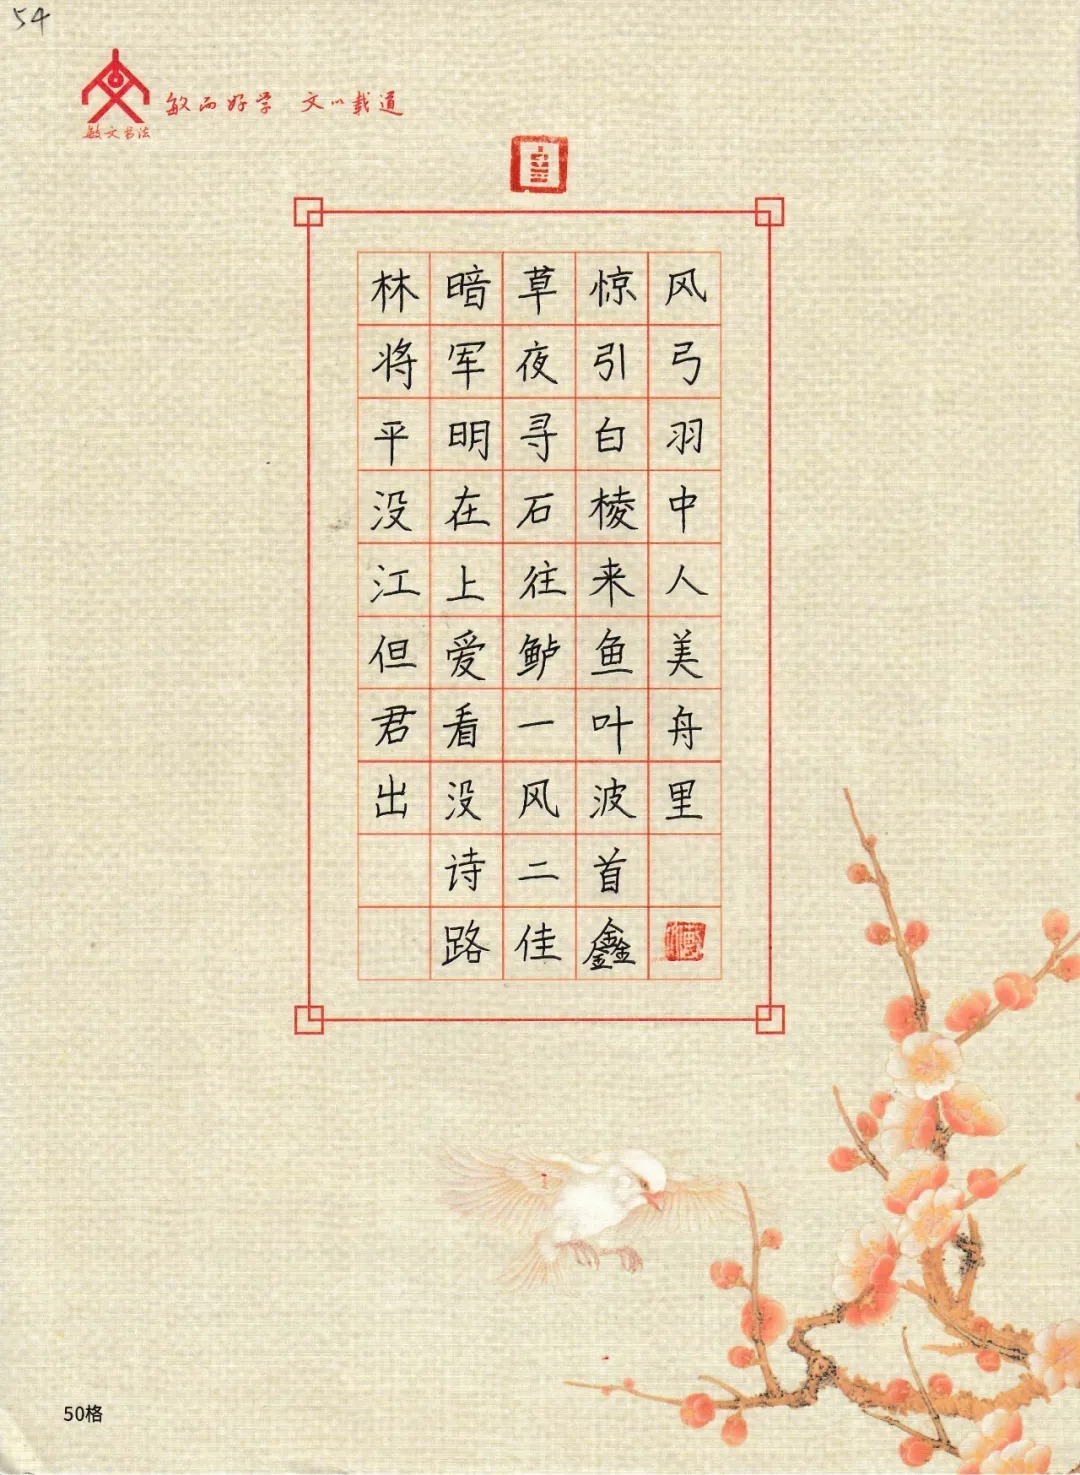 54
敏而好学 文以载道
敏文书法
林暗草惊风
将军夜引弓
平明寻白羽
没在石棱中
江上往来人
但爱鲈鱼美
君看一叶舟
出没风波里
诗二首
路佳鑫
50格